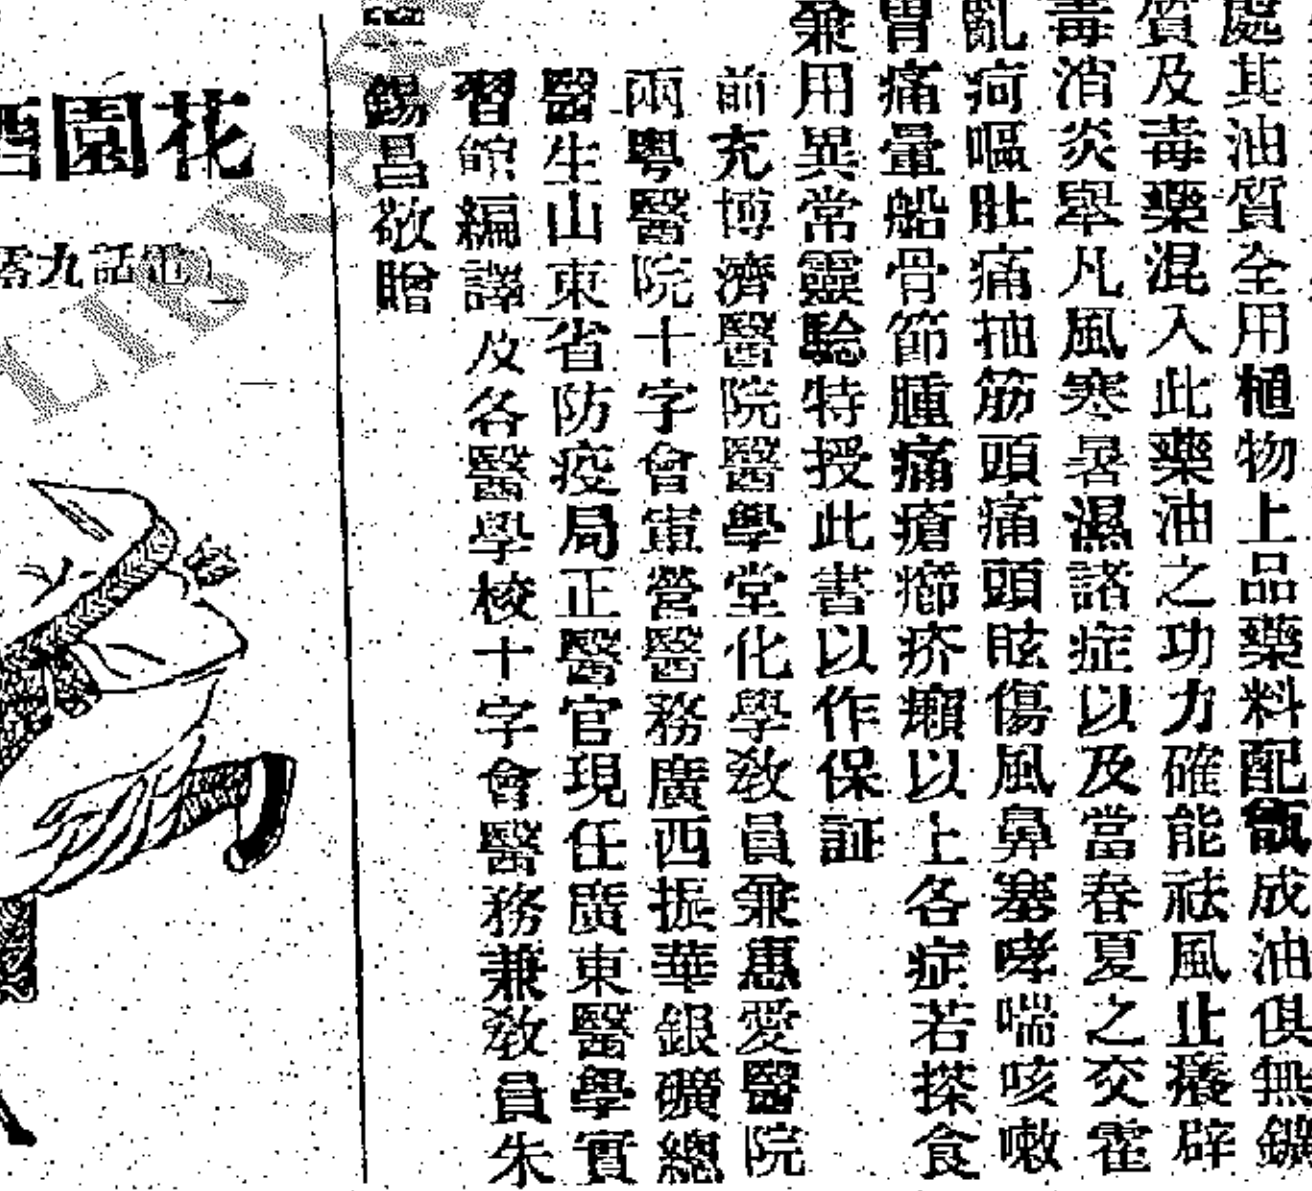 處其油質全用植物上品藥料配製成油俱無鑛
質及毒藥混入此藥油之功力確能祛風止癢辟
毒消炎舉凡風寒暑濕諸症以及當春夏之交霍
亂痾嘔肚痛抽筋頭痛頭眩傷風鼻塞哮喘咳嗽
胃痛暈船骨節腫痛瘡癤疥癩以上各症若搽食
兼用異常靈驗特授此書以作保証
前充博濟醫院醫學堂化學敎員兼惠愛醫院
兩粵醫院十字會軍營醫務廣西振華銀礦總
醫生山東省防疫局正醫官現任廣東醫學實
習館編譯及各醫學校十字會醫務兼敎員朱
錫昌敬贈
花園酒
電話九零
LIBR